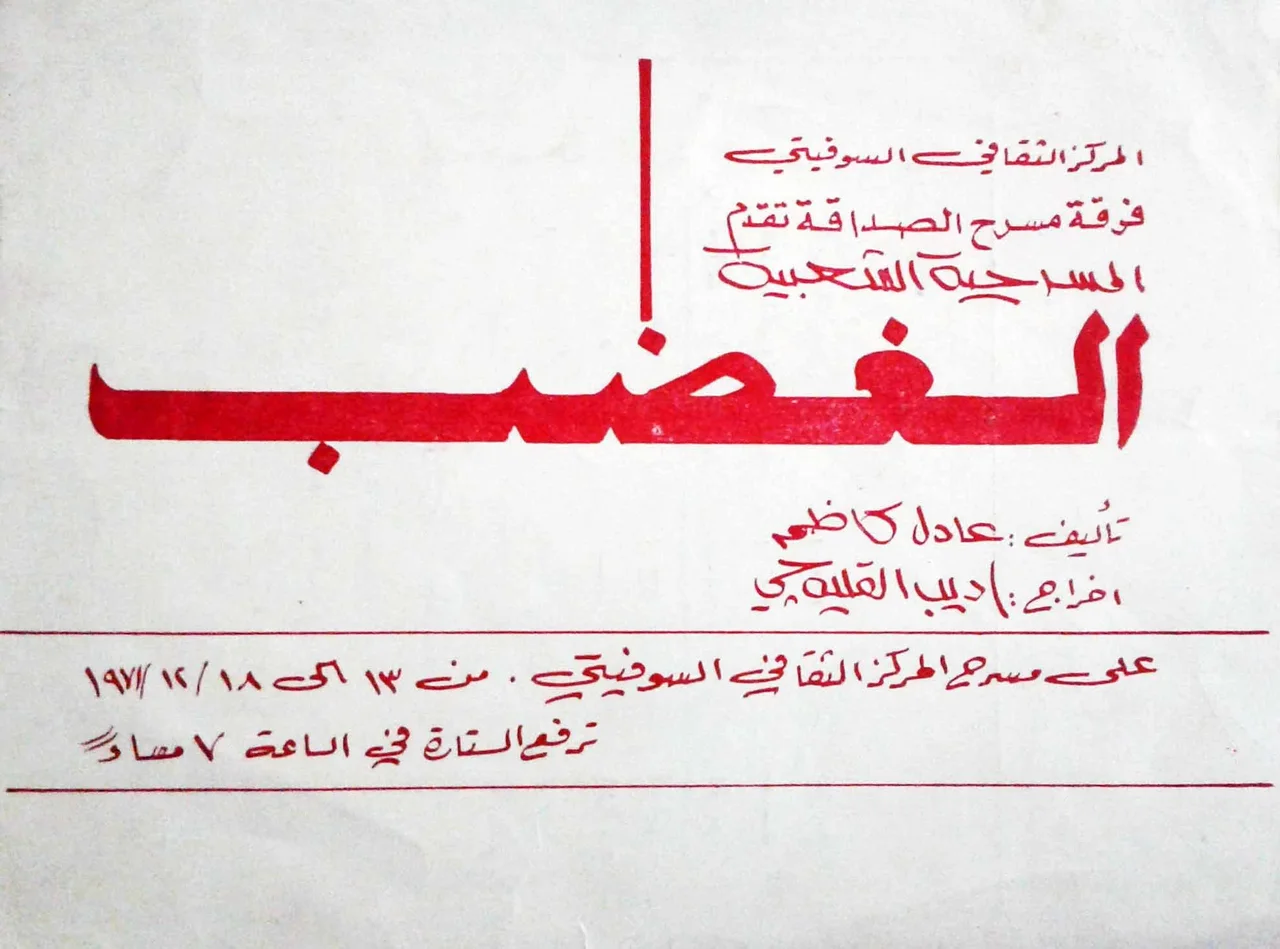 المركز الثقافي السوفيتي
فرقة مسرح الصداقة تقدم
المسرحية الشعبية
الغضب
تأليف : عادل كاظم
اخراج : اديب القليه چي
على مسرح المركز الثقافي السوفيتي . من ١٣ الى ١٨ / ١٢ / ١٩٧١
ترفع الستارة في الساعة ٧ مساءً